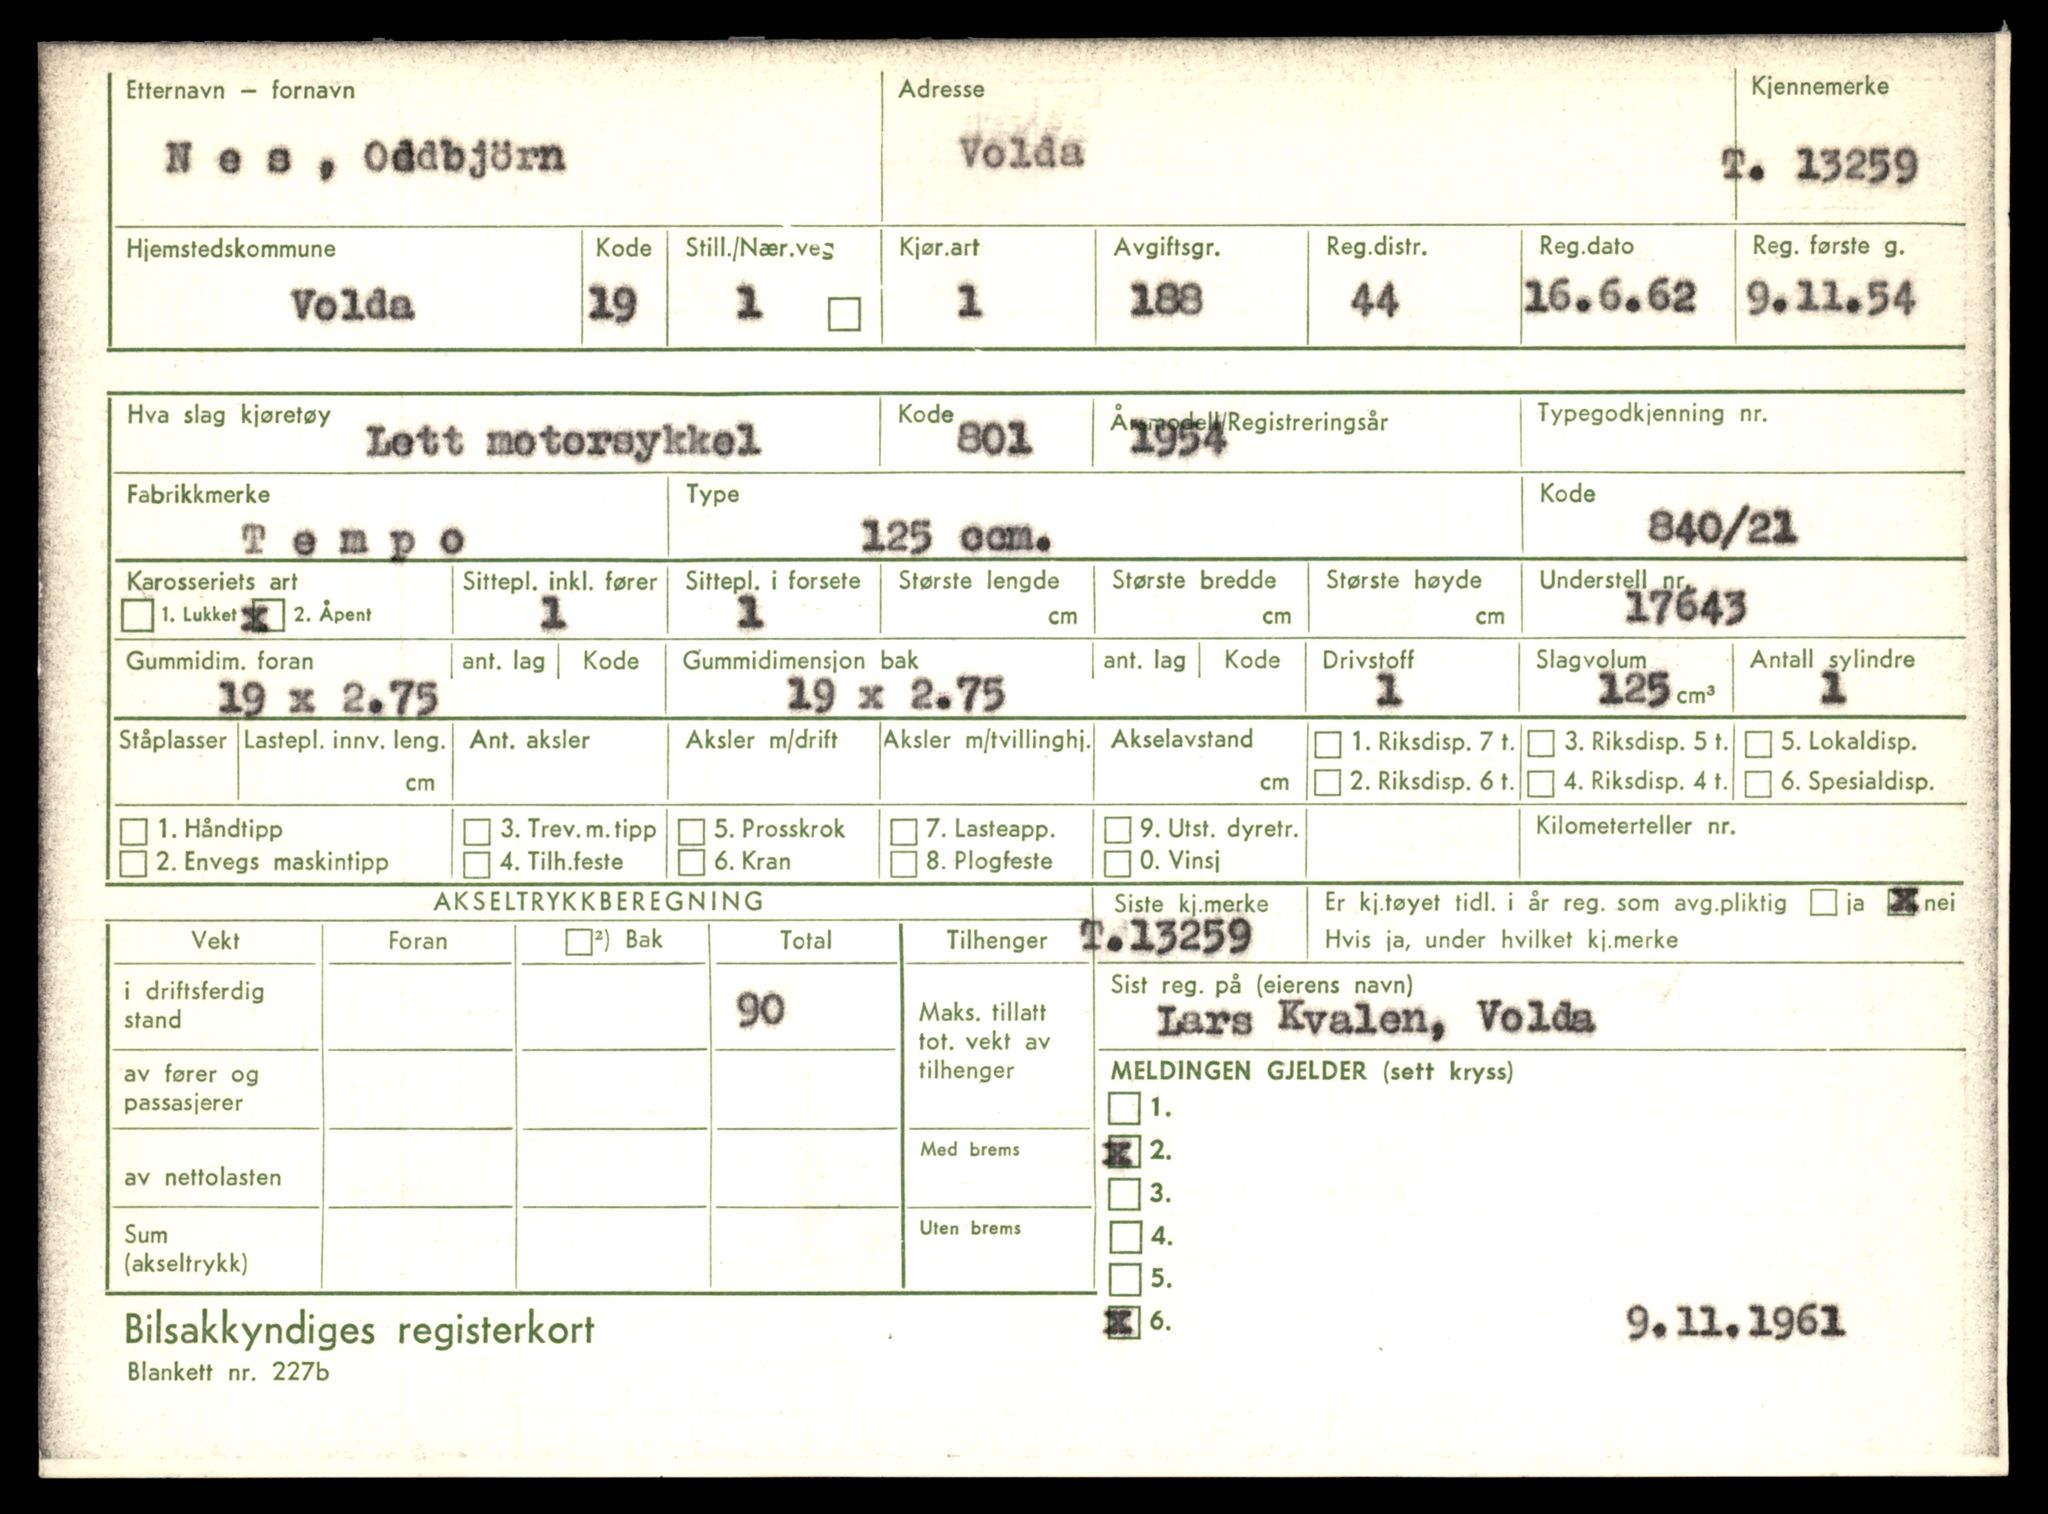 Etternavn – fornavn Adresse Kjennemerke
N e s , Oddbjörn Volda T. 13259
Hjemstedskommune Kode Still./Nær.veg Kjør.art Avgiftsgr. Reg.distr. Reg.dato Reg. første g.
Volda 19 1 1 188 44 16.6.62 9.11.54
Hva slag kjøretøy Kode Årsmodell/Registreringsår Typegodkjenning nr.
Lett motorsykkel 801 1954
Fabrikkmerke Type Kode
T e m p o 125 ccm. 840/21
Karosseriets art Sittepl. inkl. fører Sittepl. i forsete Største lengde Største bredde Største høyde Understell nr.
1. Lukket x 2. Åpent 1 1 cm cm cm 17643
Gummidim. foran ant. lag Kode Gummidimensjon bak ant. lag Kode Drivstoff Slagvolum Antall sylindre
19 x 2.75 19 x 2.75 1 125 cm³ 1
Ståplasser Lastepl. innv. leng. Ant. aksler Aksler m/drift Aksler m/tvillinghj. Akselavstand 1. Riksdisp. 7 t. 3. Riksdisp. 5 t. 5. Lokaldisp.
cm cm 2. Riksdisp. 6 t. 4. Riksdisp. 4 t. 6. Spesialdisp.
1. Håndtipp 3. Trev. m. tipp 5. Prosskrok 7. Lasteapp. 9. Utst. dyretr. Kilometerteller nr.
2. Envegs maskintipp 4. Tilh.feste 6. Kran 8. Plogfeste 0. Vinsj
AKSELTRYKKBEREGNING Siste kj.merke Er kj.tøyet tidl. i år reg. som avg.pliktig ja x nei
Vekt Foran ²) Bak Total Tilhenger T.13259 Hvis ja, under hvilket kj.merke
i driftsferdig stand 90 Maks. tillatt tot. vekt av tilhenger Sist reg. på (eierens navn)
Lars Kvalen, Volda
av fører og passasjerer MELDINGEN GJELDER (sett kryss)
1.
av nettolasten Med brems x 2.
3.
Sum (akseltrykk) Uten brems 4.
5.
Bilsakkyndiges registerkort x 6. 9.11.1961
Blankett nr. 227b